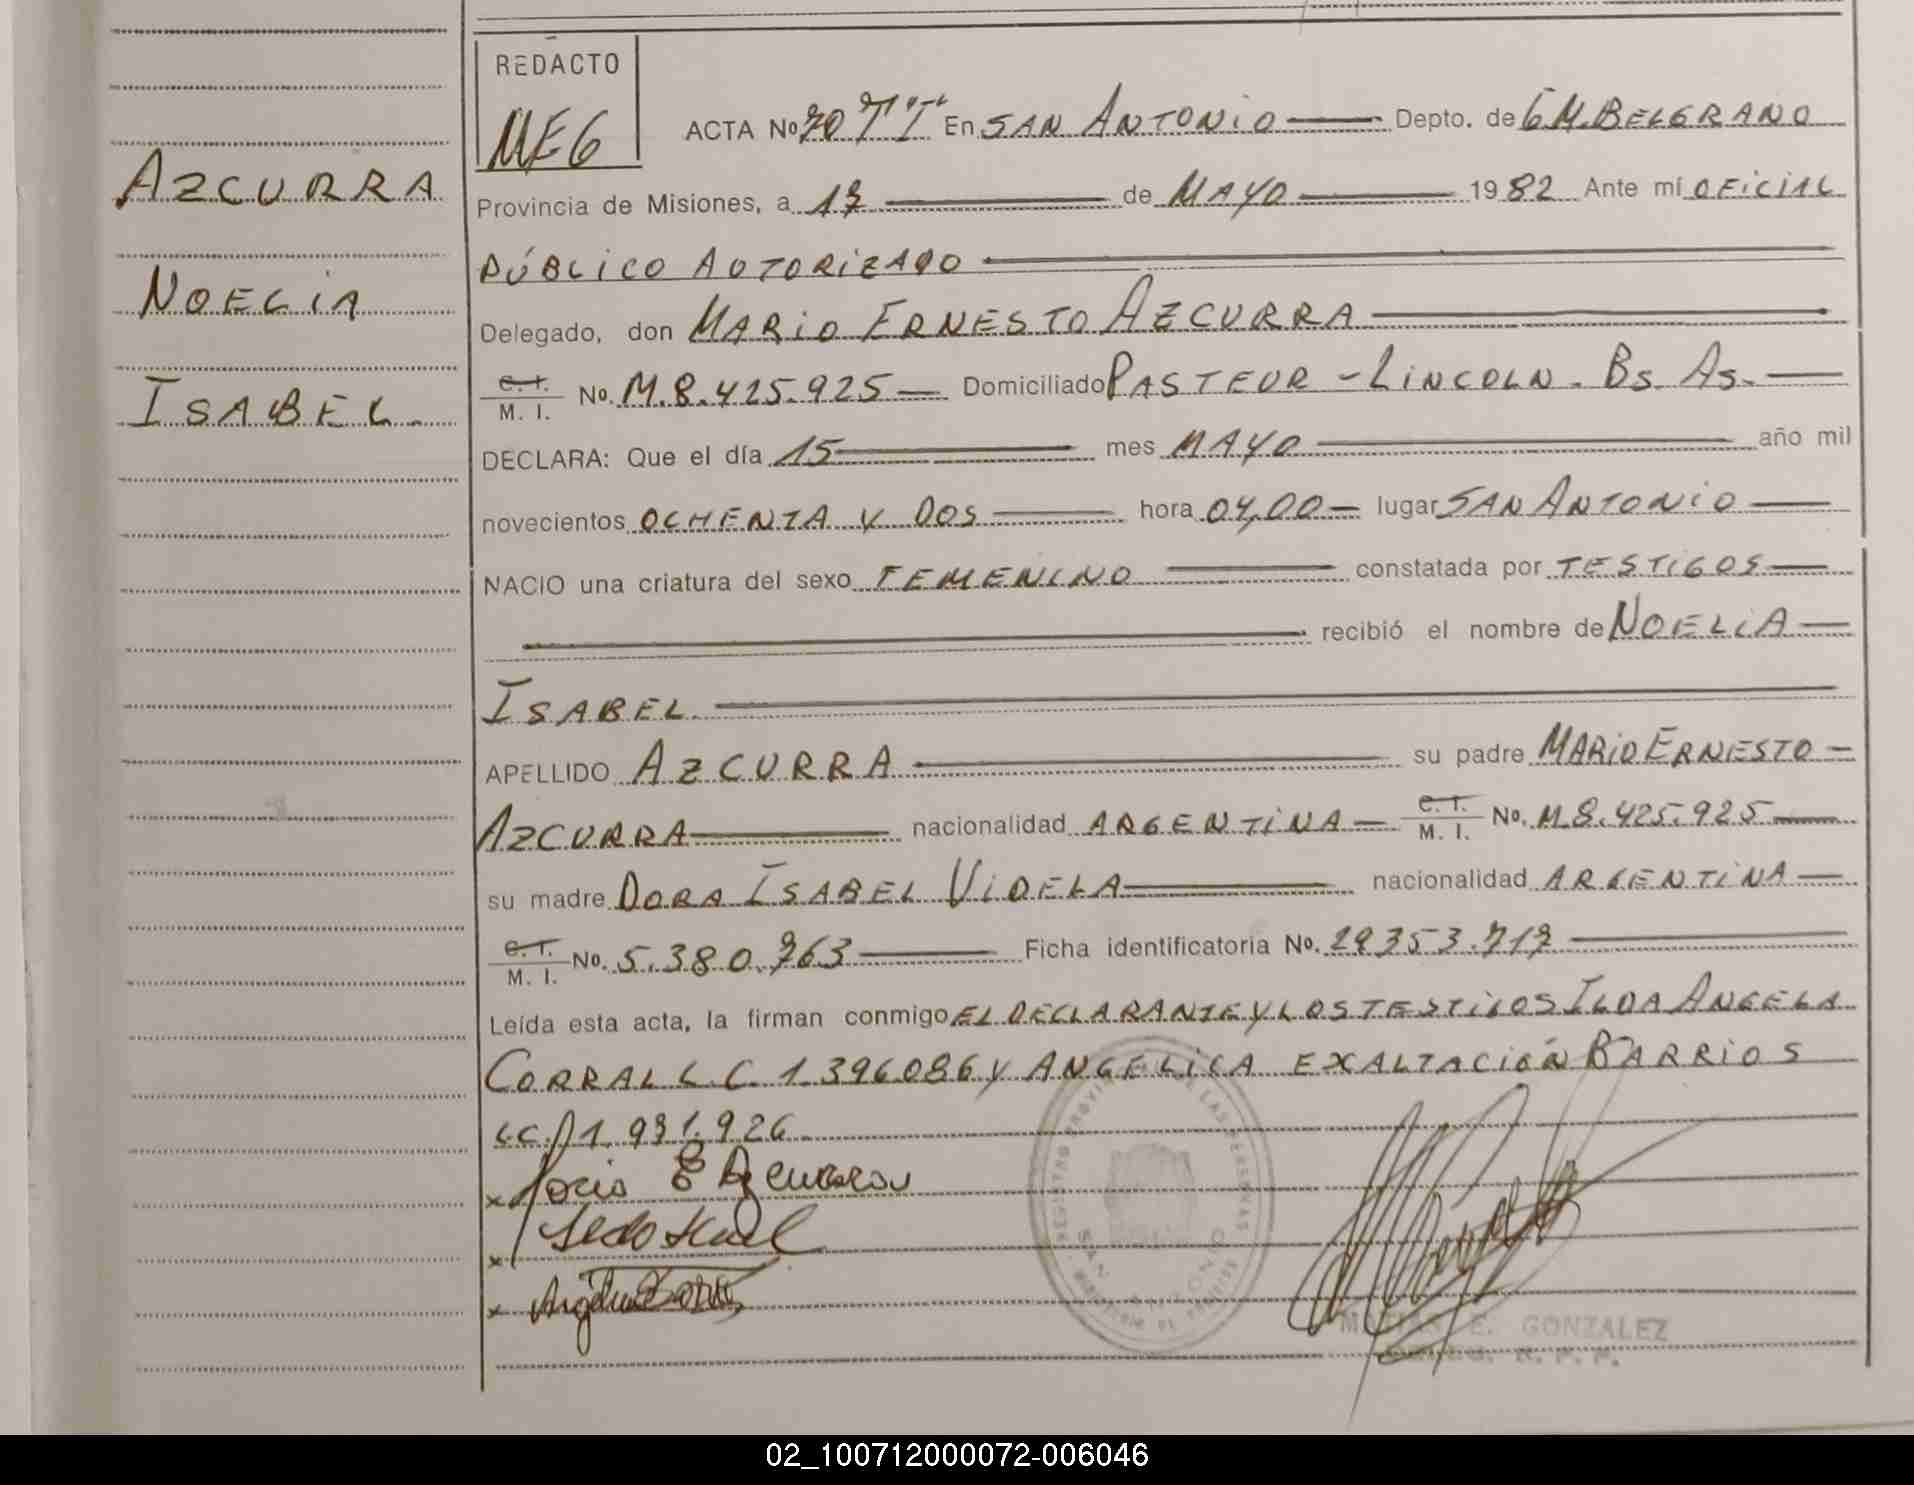 AZCURRA
NOELIA
ISABEL.
REDACTO
MEG
ACTA No 70 T"I" En SAN ANTONIO Depto. de G M. BELGRANO
Provincia de Misiones, a 17 de MAYO 1982 Ante mí OFICIAL
PÚBLICO AUTORIZADO
Delegado, don MARIO ERNESTO AZCURRA
C. I. / M. I. No. M.8.425.925 Domiciliado PASTEUR - LINCOLN. Bs. As.
DECLARA: Que el día 15 mes MAYO año mil
novecientos OCHENTA Y DOS hora 04,00 lugar SAN ANTONIO
NACIO una criatura del sexo FEMENINO constatada por TESTIGOS
recibió el nombre de NOELIA
ISABEL.
APELLIDO AZCURRA su padre MARIO ERNESTO
AZCURRA nacionalidad ARGENTINA C. I. / M. I. No. M.8.425.925
su madre DORA ISABEL VIDELA nacionalidad ARGENTINA
C. I. / M. I. No. 5.380.763 Ficha identificatoria No. 29353.717
Leída esta acta, la firman conmigo EL DECLARANTE Y LOS TESTIGOS ILDA ANGELA
CORRAL L.C. 1.396086 Y ANGELICA EXALTACIÓN BARRIOS
LC. 1.931.926
REGISTRO PROVINCIAL DE LAS PERSONAS
SAN ANTONIO
MATIAS E. GONZALEZ
R. P. P.
02_100712000072-006046